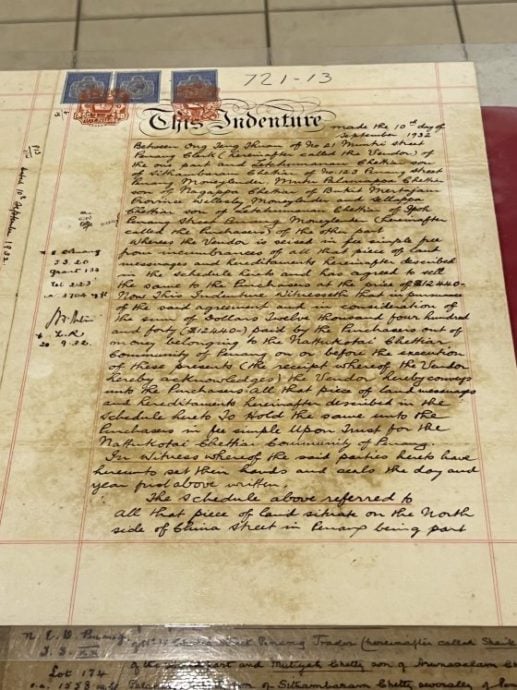 721-13
This Indenture made the 10th day of
September 1932
Between Ong Teng Thuan of No 21 Muntri Street
Penang Clerk (hereinafter called the Vendor) of
the one part and Letchumanan Chettiar son
of Sithambaram Chettiar of No 123 Penang Street
Penang Moneylender Muthu Palaniappa Chettiar
son of Nagappa Chettiar of Bukit Mertajam
Province Wellesley Moneylender and Sellappa
Chettiar son of Letchumanan Chettiar of
Penang Street Penang Moneylender (hereinafter
called the Purchasers) of the other part
Whereas the Vendor is seised in fee simple free
from incumbrances of all that piece of land
messuages and hereditaments hereinafter described
in the schedule hereto and has agreed to sell
the same to the Purchasers at the price of $12440-
Now This Indenture Witnesseth that in pursuance
of the said agreement and in consideration of
the sum of Dollars Twelve thousand four hundred
and forty ($12440-) paid by the Purchasers out of
money belonging to the Nattukotai Chettiar
Community of Penang on or before the execution
of these presents (the receipt whereof the Vendor
hereby acknowledges) the Vendor hereby conveys
unto the Purchasers all that piece of land messuages
and hereditaments hereinafter described in the
schedule hereto To Hold the same unto the
Purchasers in fee simple Upon Trust for the
Nattukotai Chettiar Community of Penang.
In Witness whereof the said parties hereto have
hereunto set their hands and seals the day and
year first above written.
The Schedule above referred to
All that piece of land situate on the North
side of China Street in Penang being part
dated 10th September 1932
Penang
Grant
20 9.32
Penang Trader (hereinafter called
Lot 174
son of Sithambaram Chetty